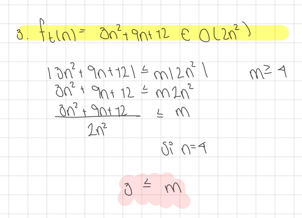 3. f_t(n) = 3n² + 9n + 12 ∈ O(2n²)
|3n² + 9n + 12| ≤ m|2n²| m ≥ 4
3n² + 9n + 12 ≤ m2n²
3n² + 9n + 12 ≤ m
2n²
Si n=4
3 ≤ m